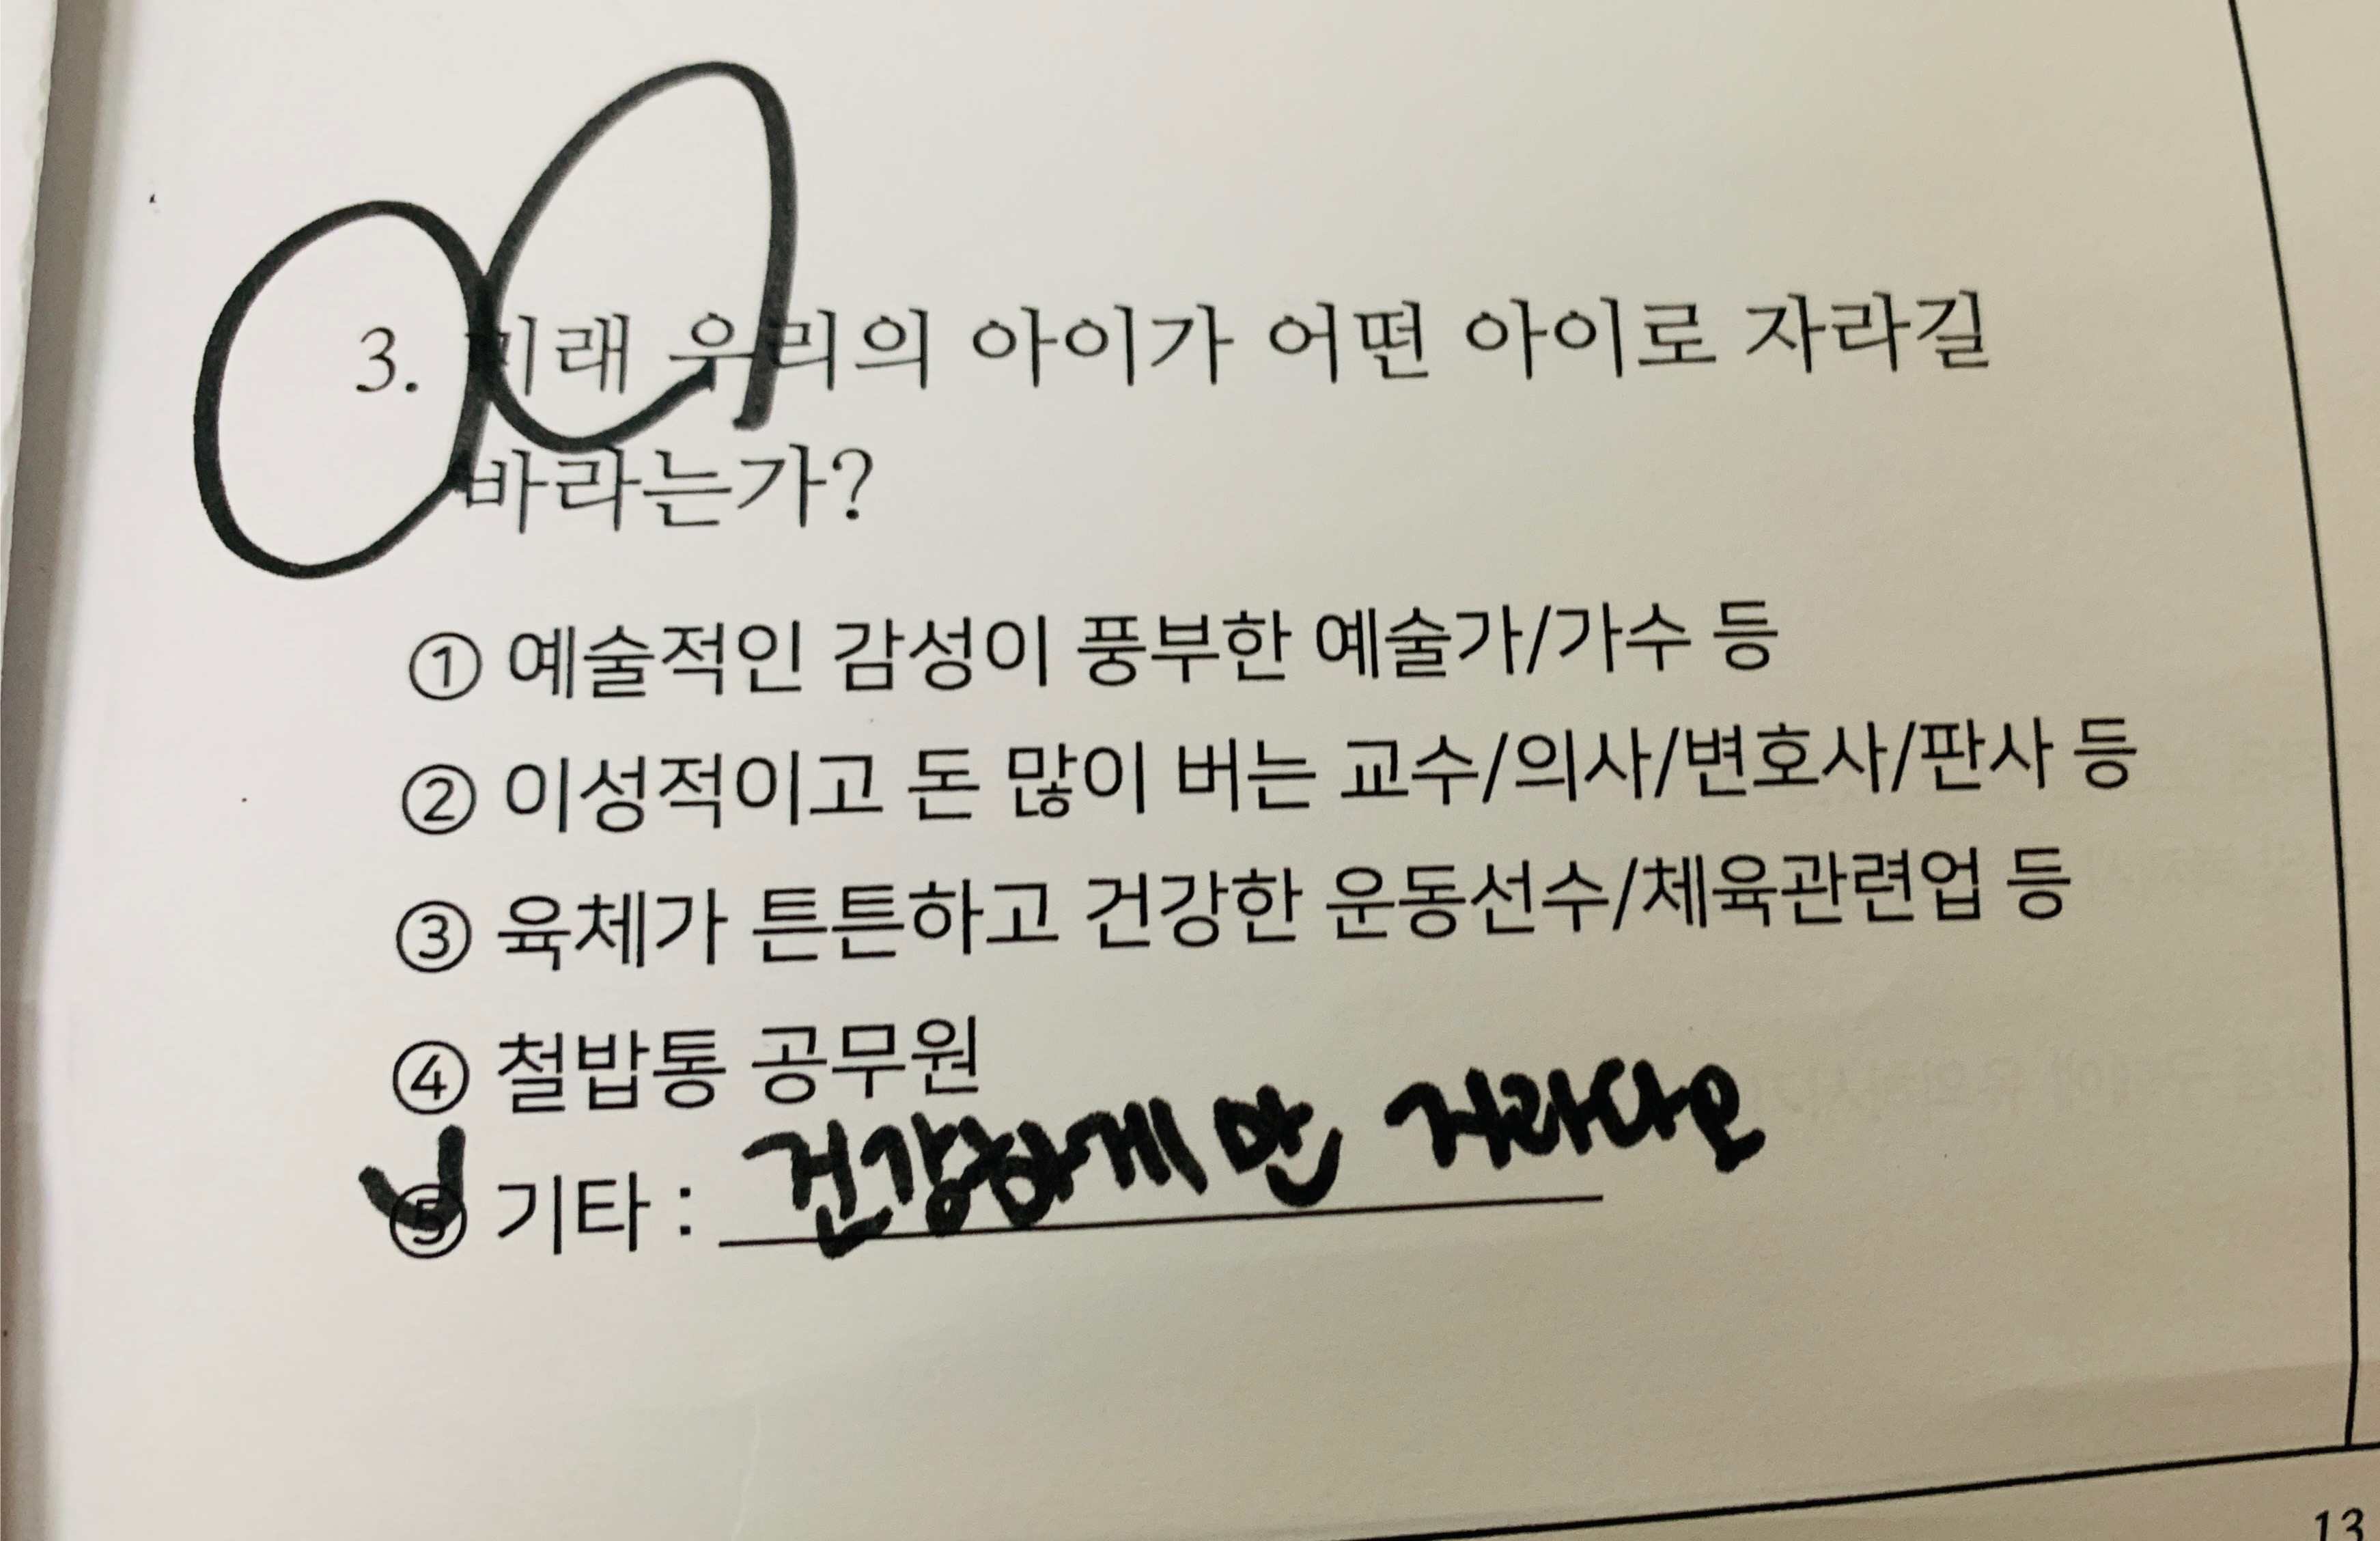 3. 미래 우리의 아이가 어떤 아이로 자라길
바라는가?
① 예술적인 감성이 풍부한 예술가/가수 등
② 이성적이고 돈 많이 버는 교수/의사/변호사/판사 등
③ 육체가 튼튼하고 건강한 운동선수/체육관련업 등
④ 철밥통 공무원
⑤ 기타 : 건강하게만 자라다오
13